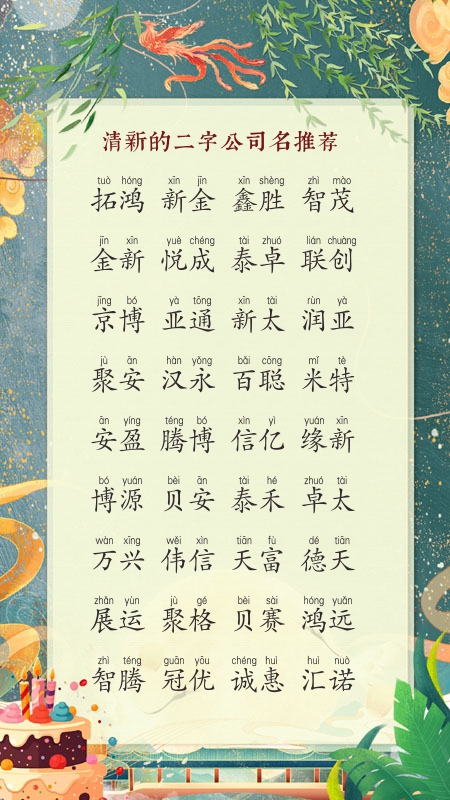 清新的二字公司名推荐
tuò hóng xīn jīn xīn shèng zhì mào
拓鸿 新金 鑫胜 智茂
jīn xīn yuè chéng tài zhuó lián chuàng
金新 悦成 泰卓 联创
jīng bó yà tōng xīn tài rùn yà
京博 亚通 新太 润亚
jù ān hàn yǒng bǎi cōng mǐ tè
聚安 汉永 百聪 米特
ān yíng téng bó xìn yì yuán xīn
安盈 腾博 信亿 缘新
bó yuán bèi ān tài hé zhuó tài
博源 贝安 泰禾 卓太
wàn xīng wěi xìn tiān fù dé tiān
万兴 伟信 天富 德天
zhǎn yùn jù gé bèi sài hóng yuǎn
展运 聚格 贝赛 鸿远
zhì téng guān yōu chéng huì huì nuò
智腾 冠优 诚惠 汇诺